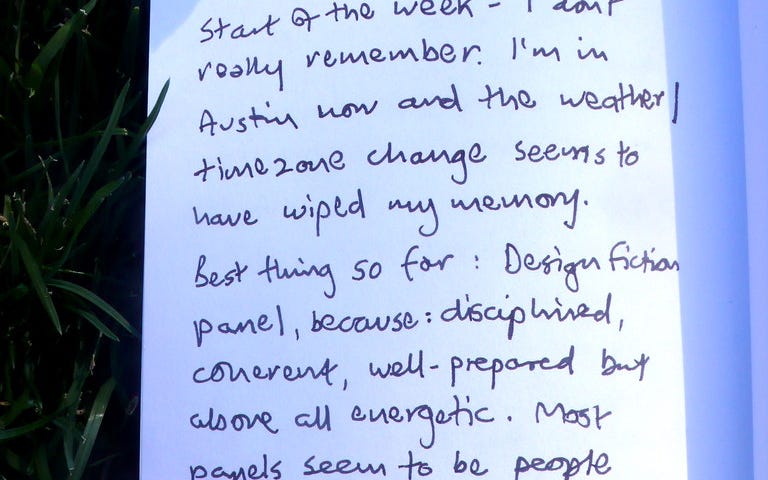 Start of the week - I don't
really remember. I'm in
Austin now and the weather/
timezone change seems to
have wiped my memory.
Best thing so far: Design fiction
panel, because: disciplined,
coherent, well-prepared but
above all energetic. Most
panels seem to be people